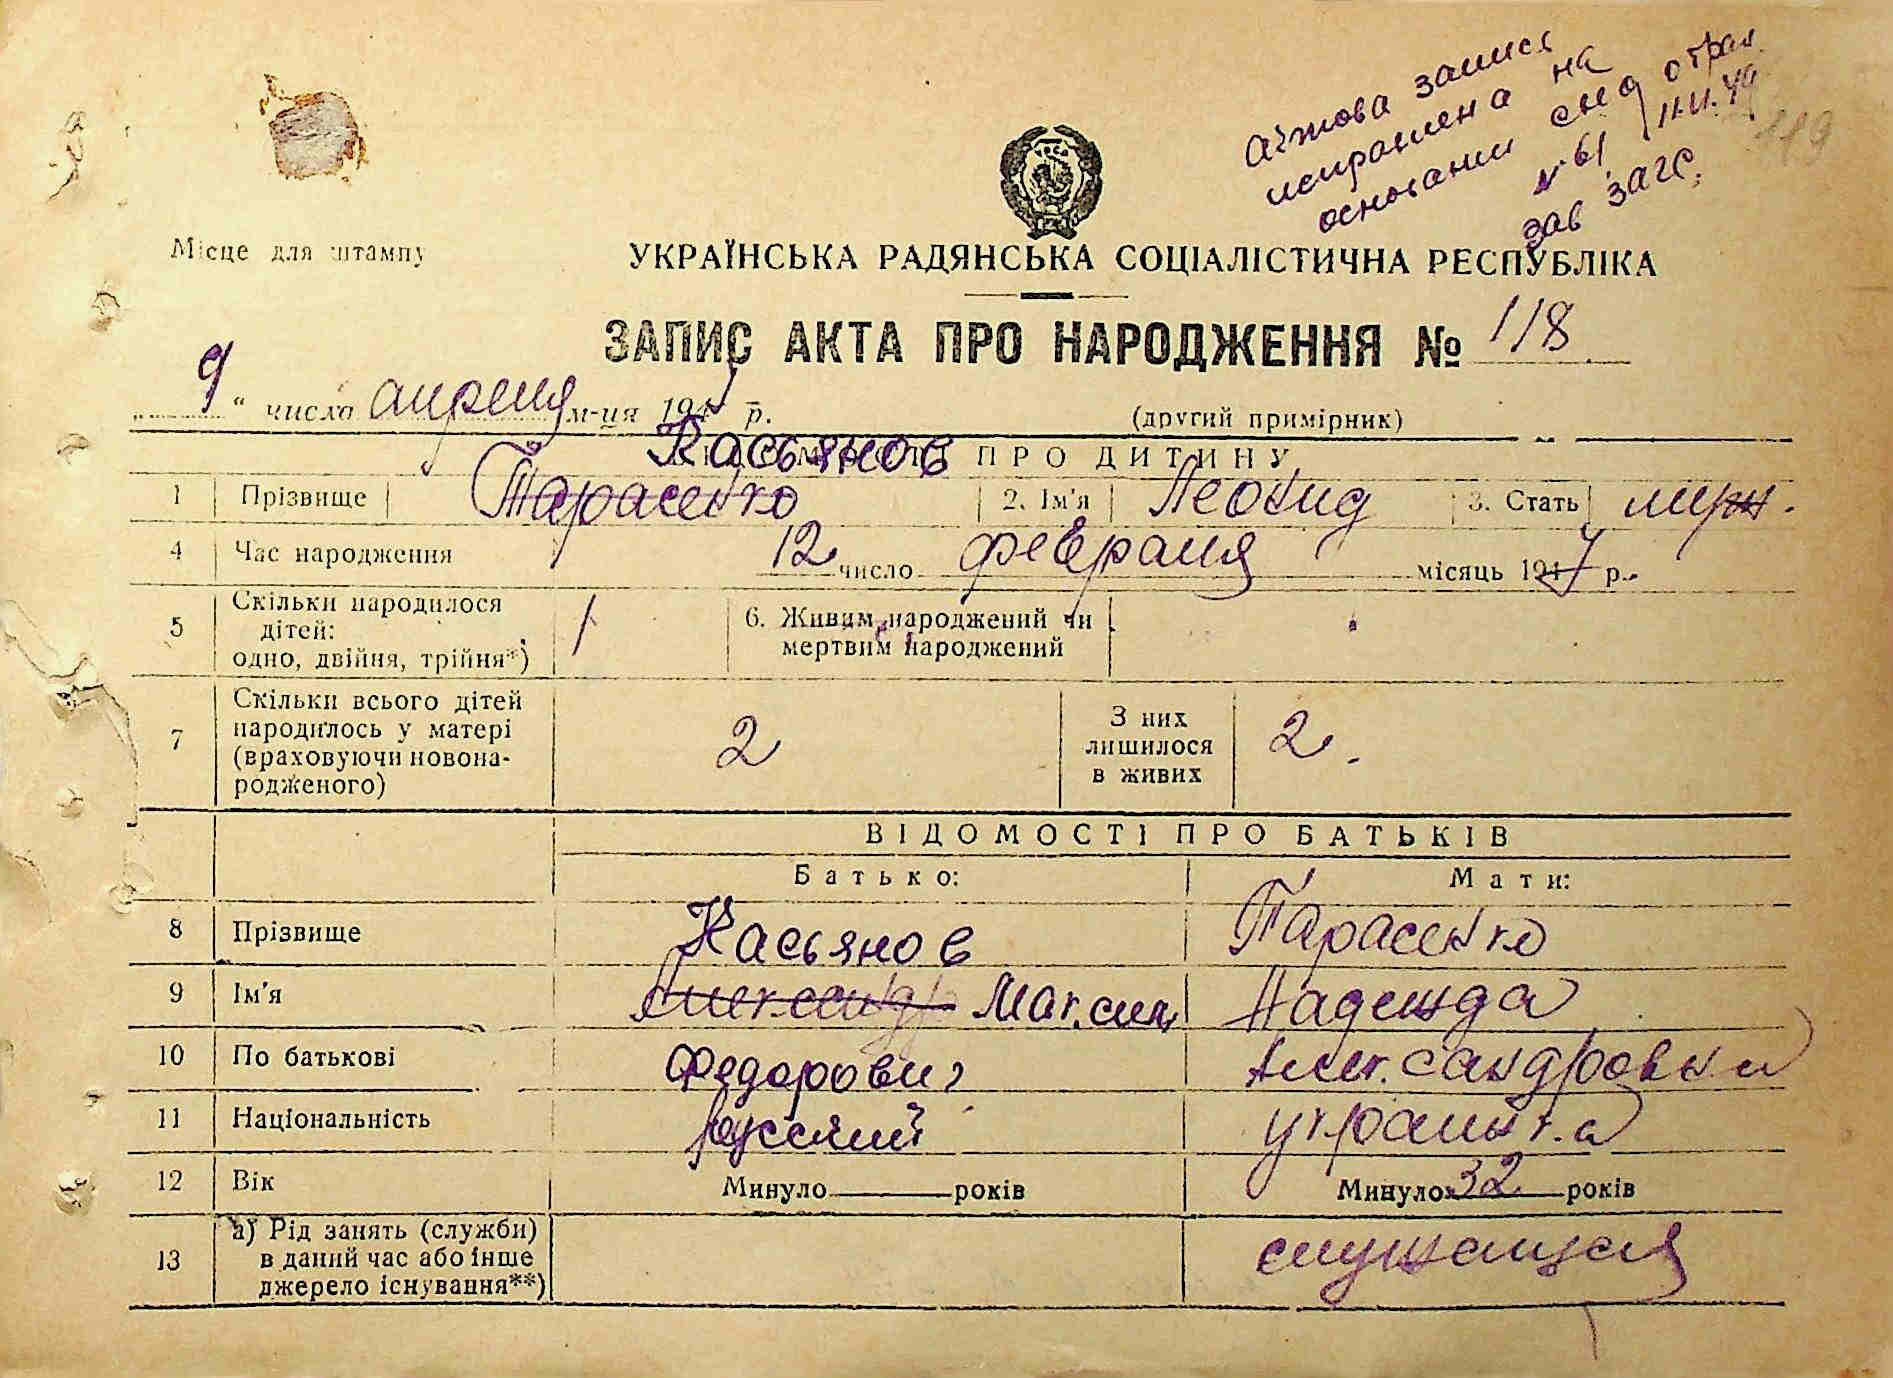 актова запись
исправлена на
основании
№ 61 11.VI.49
зав загс.
119
Місце для штампу
УКРАЇНСЬКА РАДЯНСЬКА СОЦІАЛІСТИЧНА РЕСПУБЛІКА
ЗАПИС АКТА ПРО НАРОДЖЕННЯ № 118
„9“ число апреля м-ця 194 р.
(другий примірник)
Касьянов
ПРО ДИТИНУ
1 Прізвище Тарасенко 2. Ім'я Леонид 3. Стать муж.
4 Час народження 12 число февраля місяць 1947 р.
5 Скільки народилося дітей: одно, двійня, трійня*) 1 6. Живим народжений чи мертвим народжений
7 Скільки всього дітей народилось у матері (враховуючи новонародженого) 2 З них лишилося в живих 2.
ВІДОМОСТІ ПРО БАТЬКІВ
Батько: Мати:
8 Прізвище Касьянов Тарасенко
9 Ім'я Александр Максим Надежда
10 По батькові Федорович Александровна
11 Національність русский украинка
12 Вік Минуло років Минуло 32 років
13 а) Рід занять (служби) в даний час або інше джерело існування**) служащая